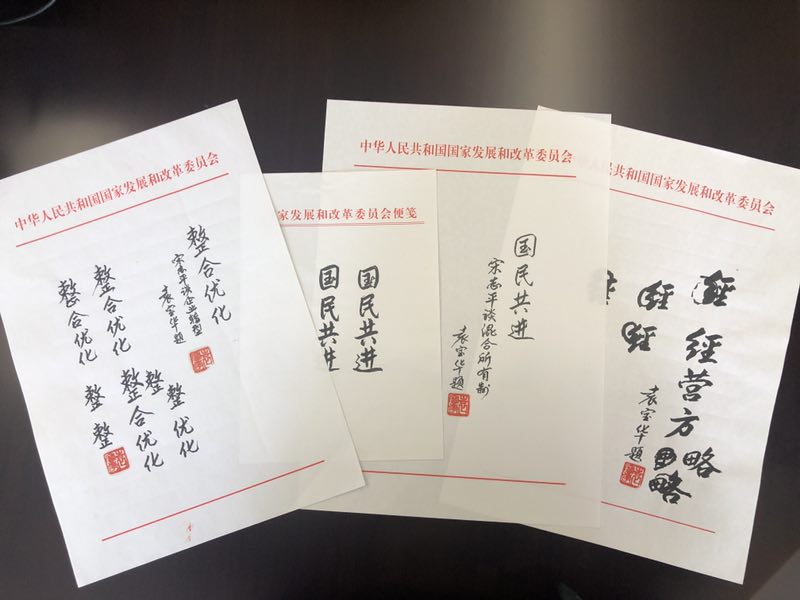 中华人民共和国国家发展和改革委员会
整合优化
宋志平谈企业转型
袁宝华题
整合优化
整合优化
整优化
整
整合优化
整
整
家发展和改革委员会便笺
国民共进
国民共进
中华人民共和国国家发展和改革委员会
国民共进
宋志平谈混合所有制
袁宝华题
民共和国国家发展和改革委员会
经营方略
略
袁宝华题